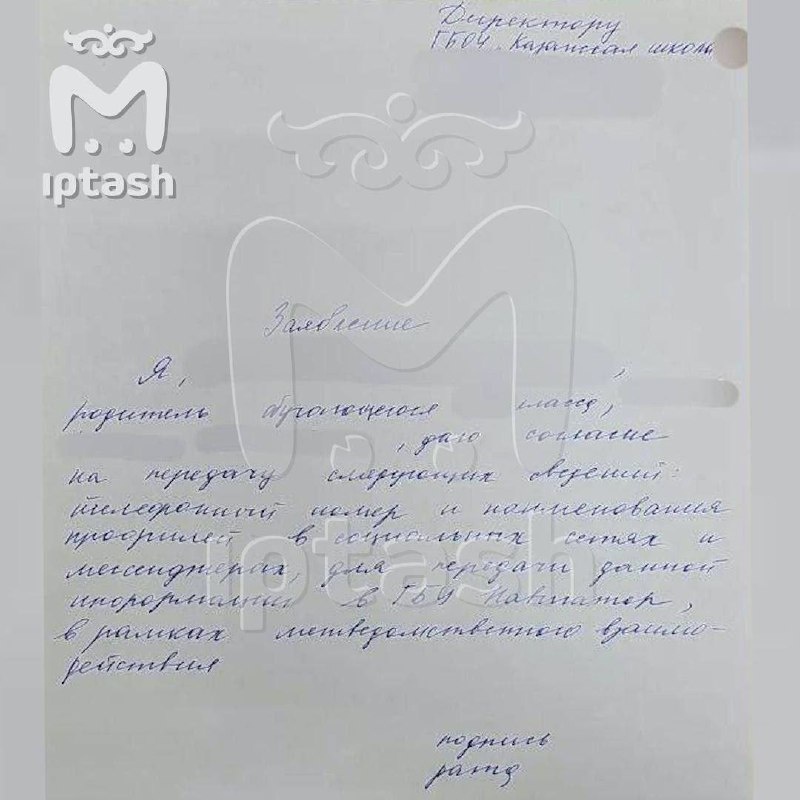 Директору
ГБОЧ "Казанская школа
ıptash
Заявление
Я, ,
родитель обучающегося класса,
, даю согласие
на передачу следующих сведений:
телефонный номер и наименования
профилей в социальных сетях и
мессенджерах, для передачи данной
информации в ГБУ Навигатор,
в рамках межведомственного взаимо-
действия
ıptash
подпись
дата